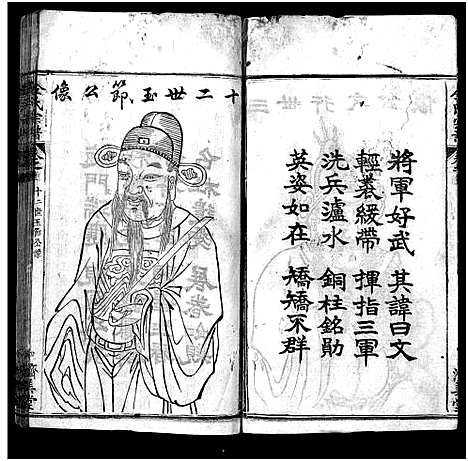 將軍好武　其諱曰文
輕裘緩帶　揮指三軍
洗兵瀘水　銅柱銘勛
英姿如在　矯矯不群
十二世玉節公像
十二世玉節公像